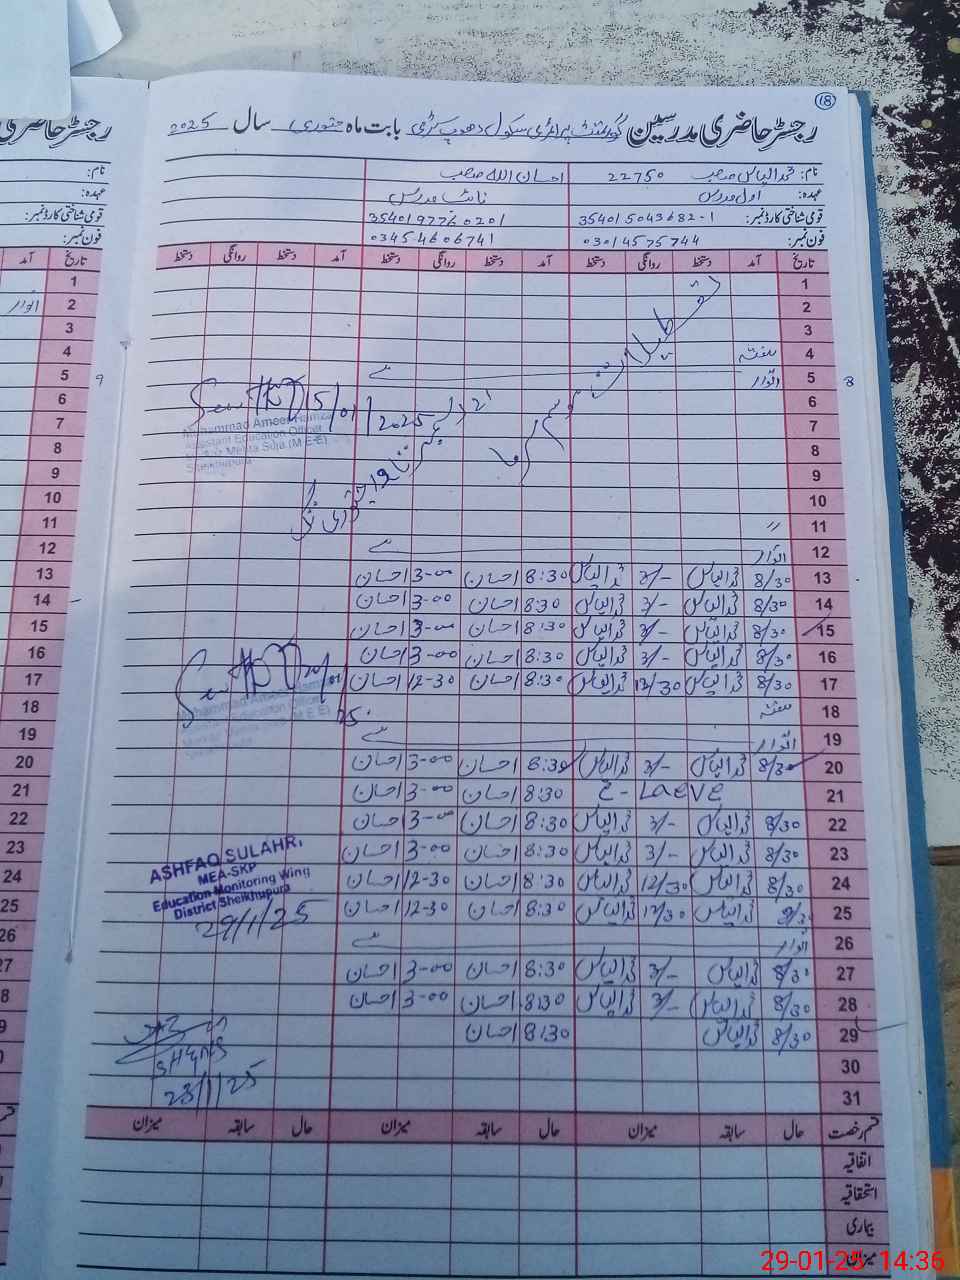 18
رجسٹر حاضری مدرسین گورنمنٹ پرائمری سکول بابت ماہ جنوری سال 2025
نام: محمد الیاس صاحب 22750 احسان اللہ صاحب
عہدہ: اول مدرس نائب مدرس
قومی شناختی کارڈ نمبر: 35401 5043682-1 35401 9777 0201
فون نمبر: 0301 4575744 0345-4606741
تاریخ آمد دستخط روانگی دستخط آمد دستخط روانگی دستخط آمد دستخط روانگی دستخط
1
2
3
4 ہفتہ
5 اتوار
6
7
8
9
10
11 "
12 اتوار
تعطیلات موسم سرما
15/01/2025
Muhammad Ameer Hamza
Assistant Education Officer
Sheikhupura
13 8/30 محمد الیاس 3/- محمد الیاس 8:30 احسان 3-00 احسان
14 8/30 محمد الیاس 3/- محمد الیاس 8:30 احسان 3-00 احسان
15 8/30 محمد الیاس 3/- محمد الیاس 8:30 احسان 3-00 احسان
16 8/30 محمد الیاس 3/- محمد الیاس 8:30 احسان 3-00 احسان
17 8/30 محمد الیاس 12/30 محمد الیاس 8:30 احسان 12-30 احسان
18 ہفتہ
19 اتوار
20 8/30 محمد الیاس 3/- محمد الیاس 8:30 احسان 3-00 احسان
21 C-Laeve 8:30 احسان 3-00 احسان
22 8/30 محمد الیاس 3/- محمد الیاس 8:30 احسان 3-00 احسان
23 8/30 محمد الیاس 3/- محمد الیاس 8:30 احسان 3-00 احسان
24 8/30 محمد الیاس 12/30 محمد الیاس 8:30 احسان 12-30 احسان
25 8/30 محمد الیاس 12/30 محمد الیاس 8:30 احسان 12-30 احسان
26 اتوار
27 8/30 محمد الیاس 3/- محمد الیاس 8:30 احسان 3-00 احسان
28 8/30 محمد الیاس 3/- محمد الیاس 8:30 احسان 3-00 احسان
29 8/30 محمد الیاس 8:30 احسان
30
31
ASHFAQ SULAHRI
MEA-SKP
Education Monitoring Wing
District Sheikhupura
29/1/25
23/1/25
قسم رخصت حال سابقہ میزان حال سابقہ میزان حال سابقہ میزان
اتفاقیہ
استحقاقیہ
بیماری
میزان
29-01-25 14:36